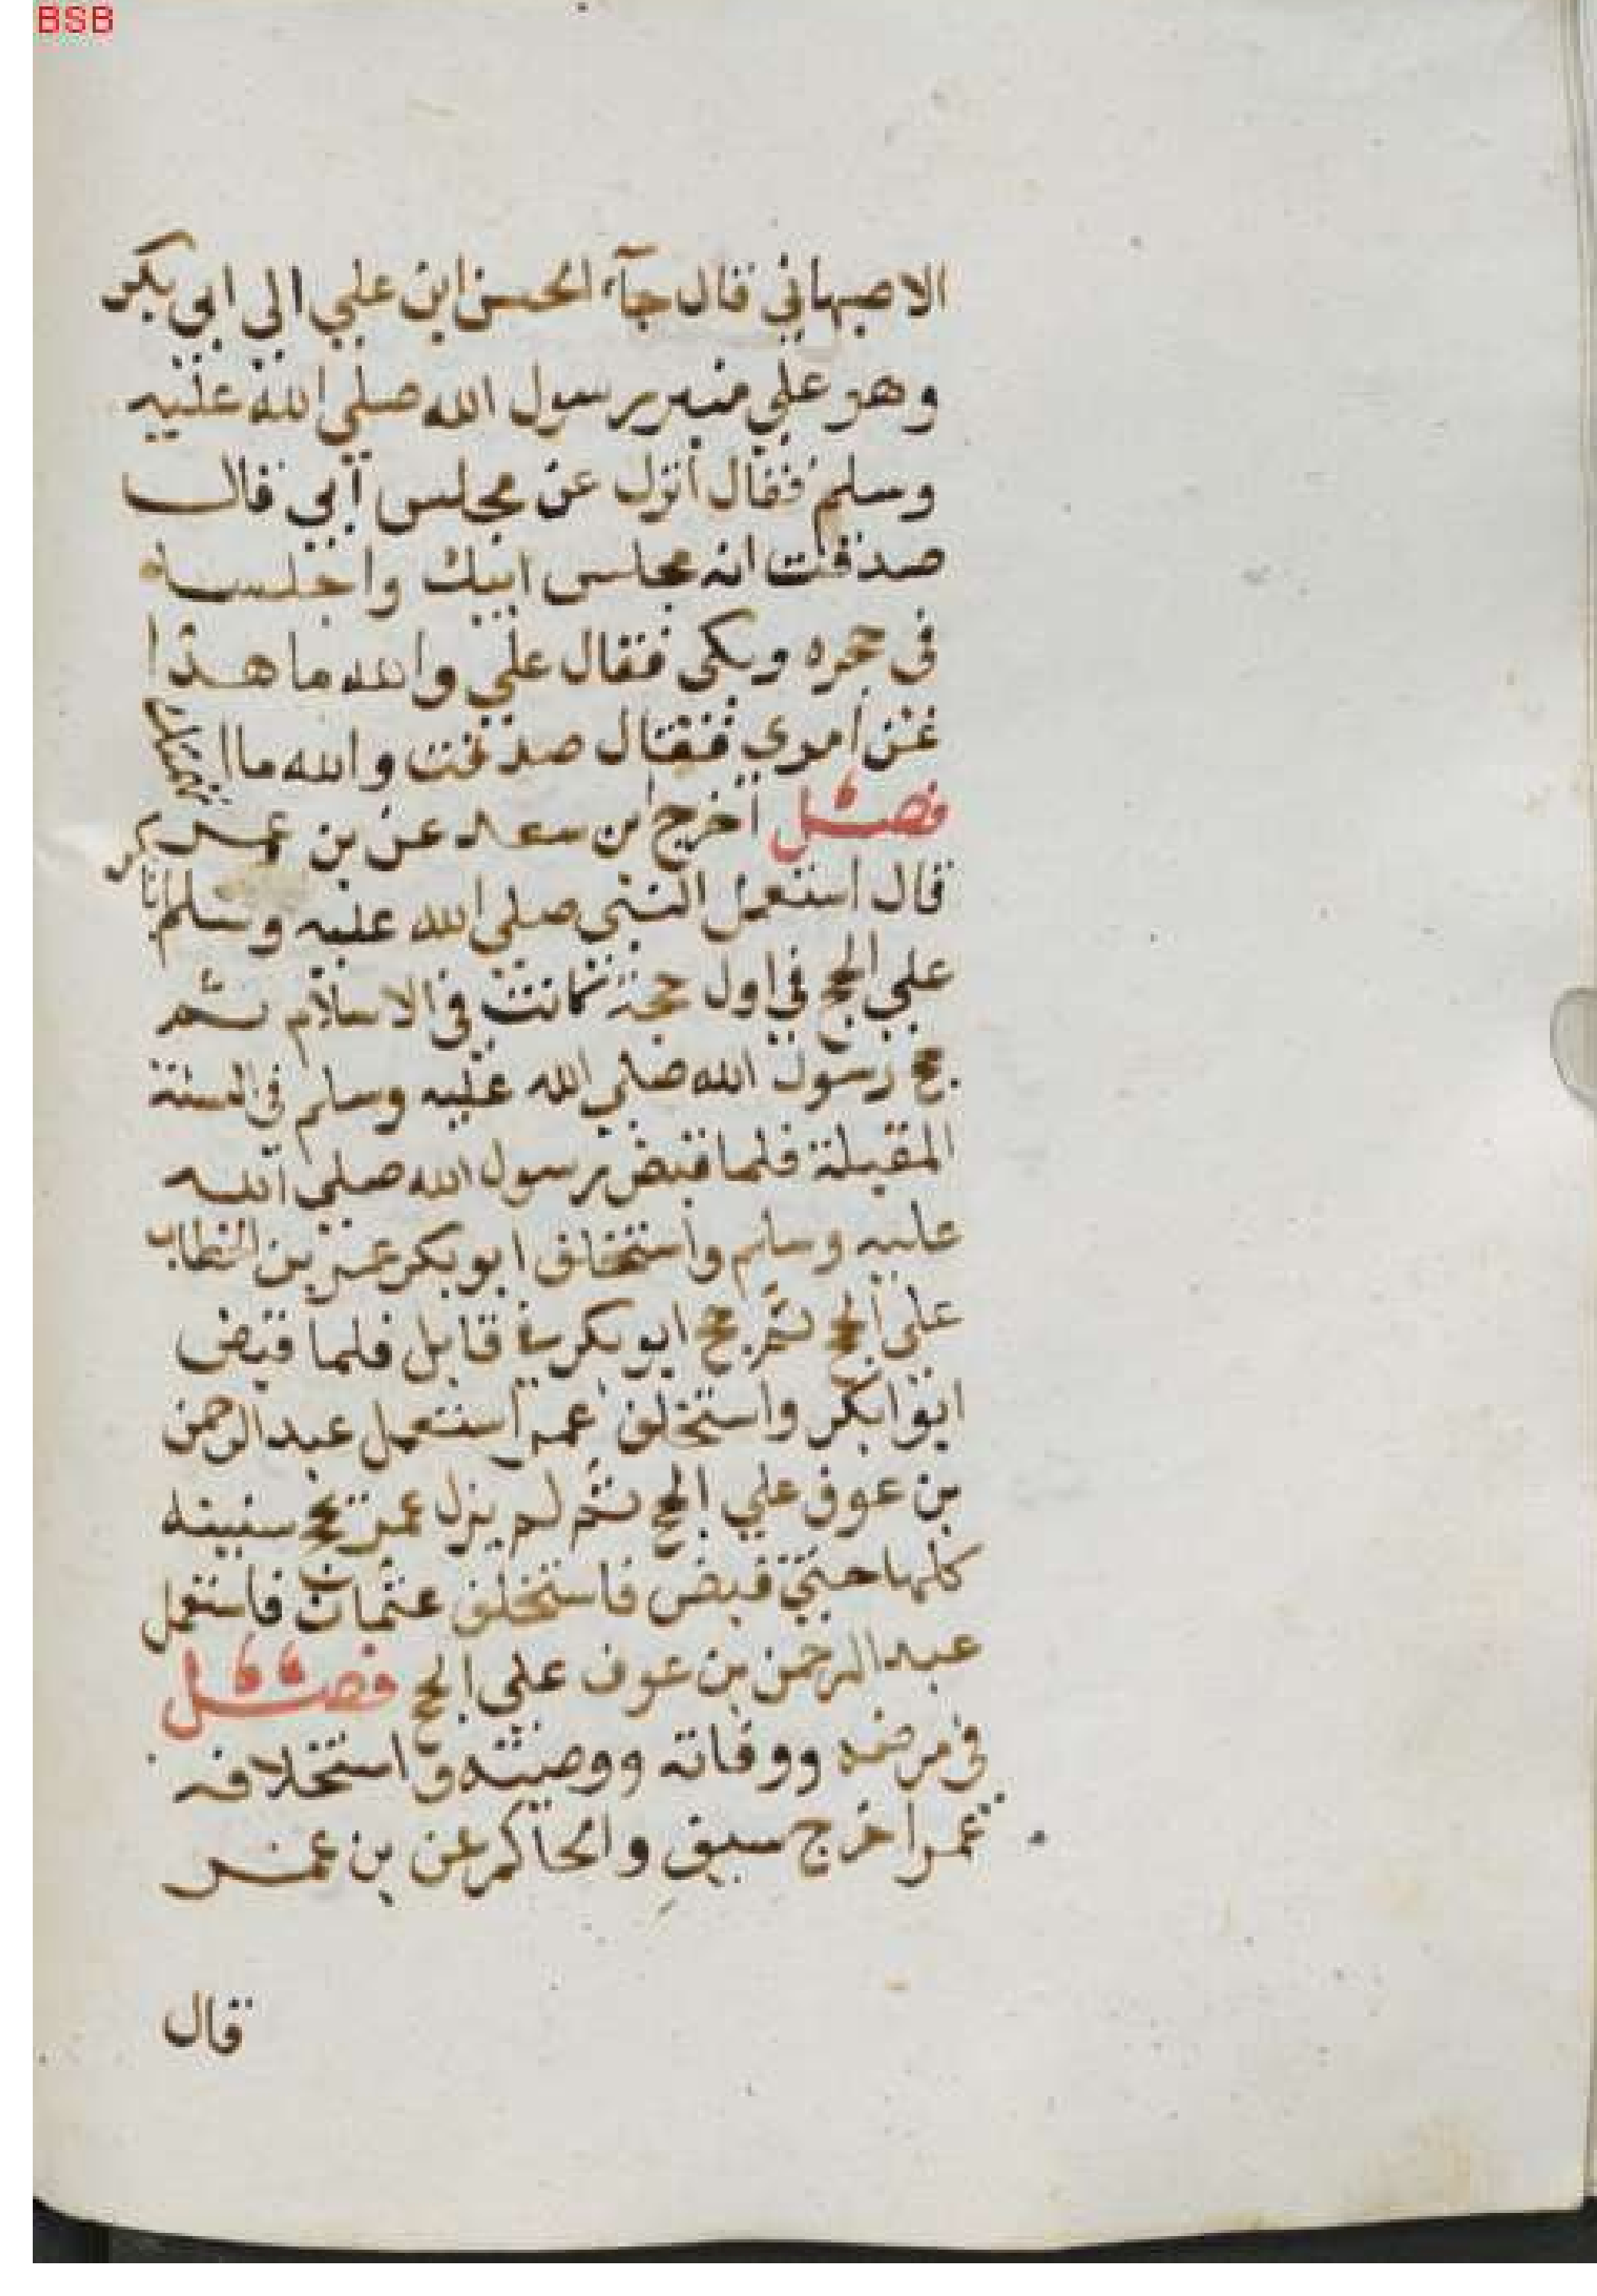 BSB
الاصبهاني قال جآء الحسن ابن علي الي ابي بكر
وهو علي منبر رسول الله صلي الله عليه
وسلم فقال انزل عن مجلس ابي قال
صدقت انه مجلس ابيك واجلسه
في حجره وبكى فقال علي والله ما هذا
عن امري فقال صدقت والله ما اتهمتك
فصل اخرج ابن سعد عن بن عمر
قال استعمل النبي صلي الله عليه وسلم ابا بكر
علي الحج في اول حجة كانت في الاسلام ثم
حج رسول الله صلي الله عليه وسلم في السنة
المقبلة فلما قبض رسول الله صلي الله
عليه وسلم واستخلف ابو بكر عمر بن الخطاب
على الحج ثم حج ابو بكر من قابل فلما قبض
ابو ابكر واستخلف عمر استعمل عبد الرحمن
بن عوف علي الحج ثم لم يزل عمر يحج سنينه
كلها حتي قبض فاستخلف عثمان فاستعمل
عبد الرحمن بن عوف علي الحج فصل
في مرضه ووفاته ووصيته واستخلافه
عمر اخرج سيف والحاكم عن بن عمر
قال